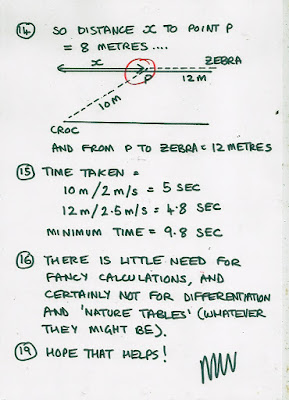 14 SO DISTANCE x TO POINT P
= 8 METRES....
x ZEBRA
P 12M
10M
CROC
AND FROM P TO ZEBRA = 12 METRES
15 TIME TAKEN =
10m/2m/s = 5 SEC
12m/2.5m/s = 4.8 SEC
MINIMUM TIME = 9.8 SEC
16 THERE IS LITTLE NEED FOR
FANCY CALCULATIONS, AND
CERTAINLY NOT FOR DIFFERENTIATION
AND 'NATURE TABLES' (WHATEVER
THEY MIGHT BE).
19 HOPE THAT HELPS!